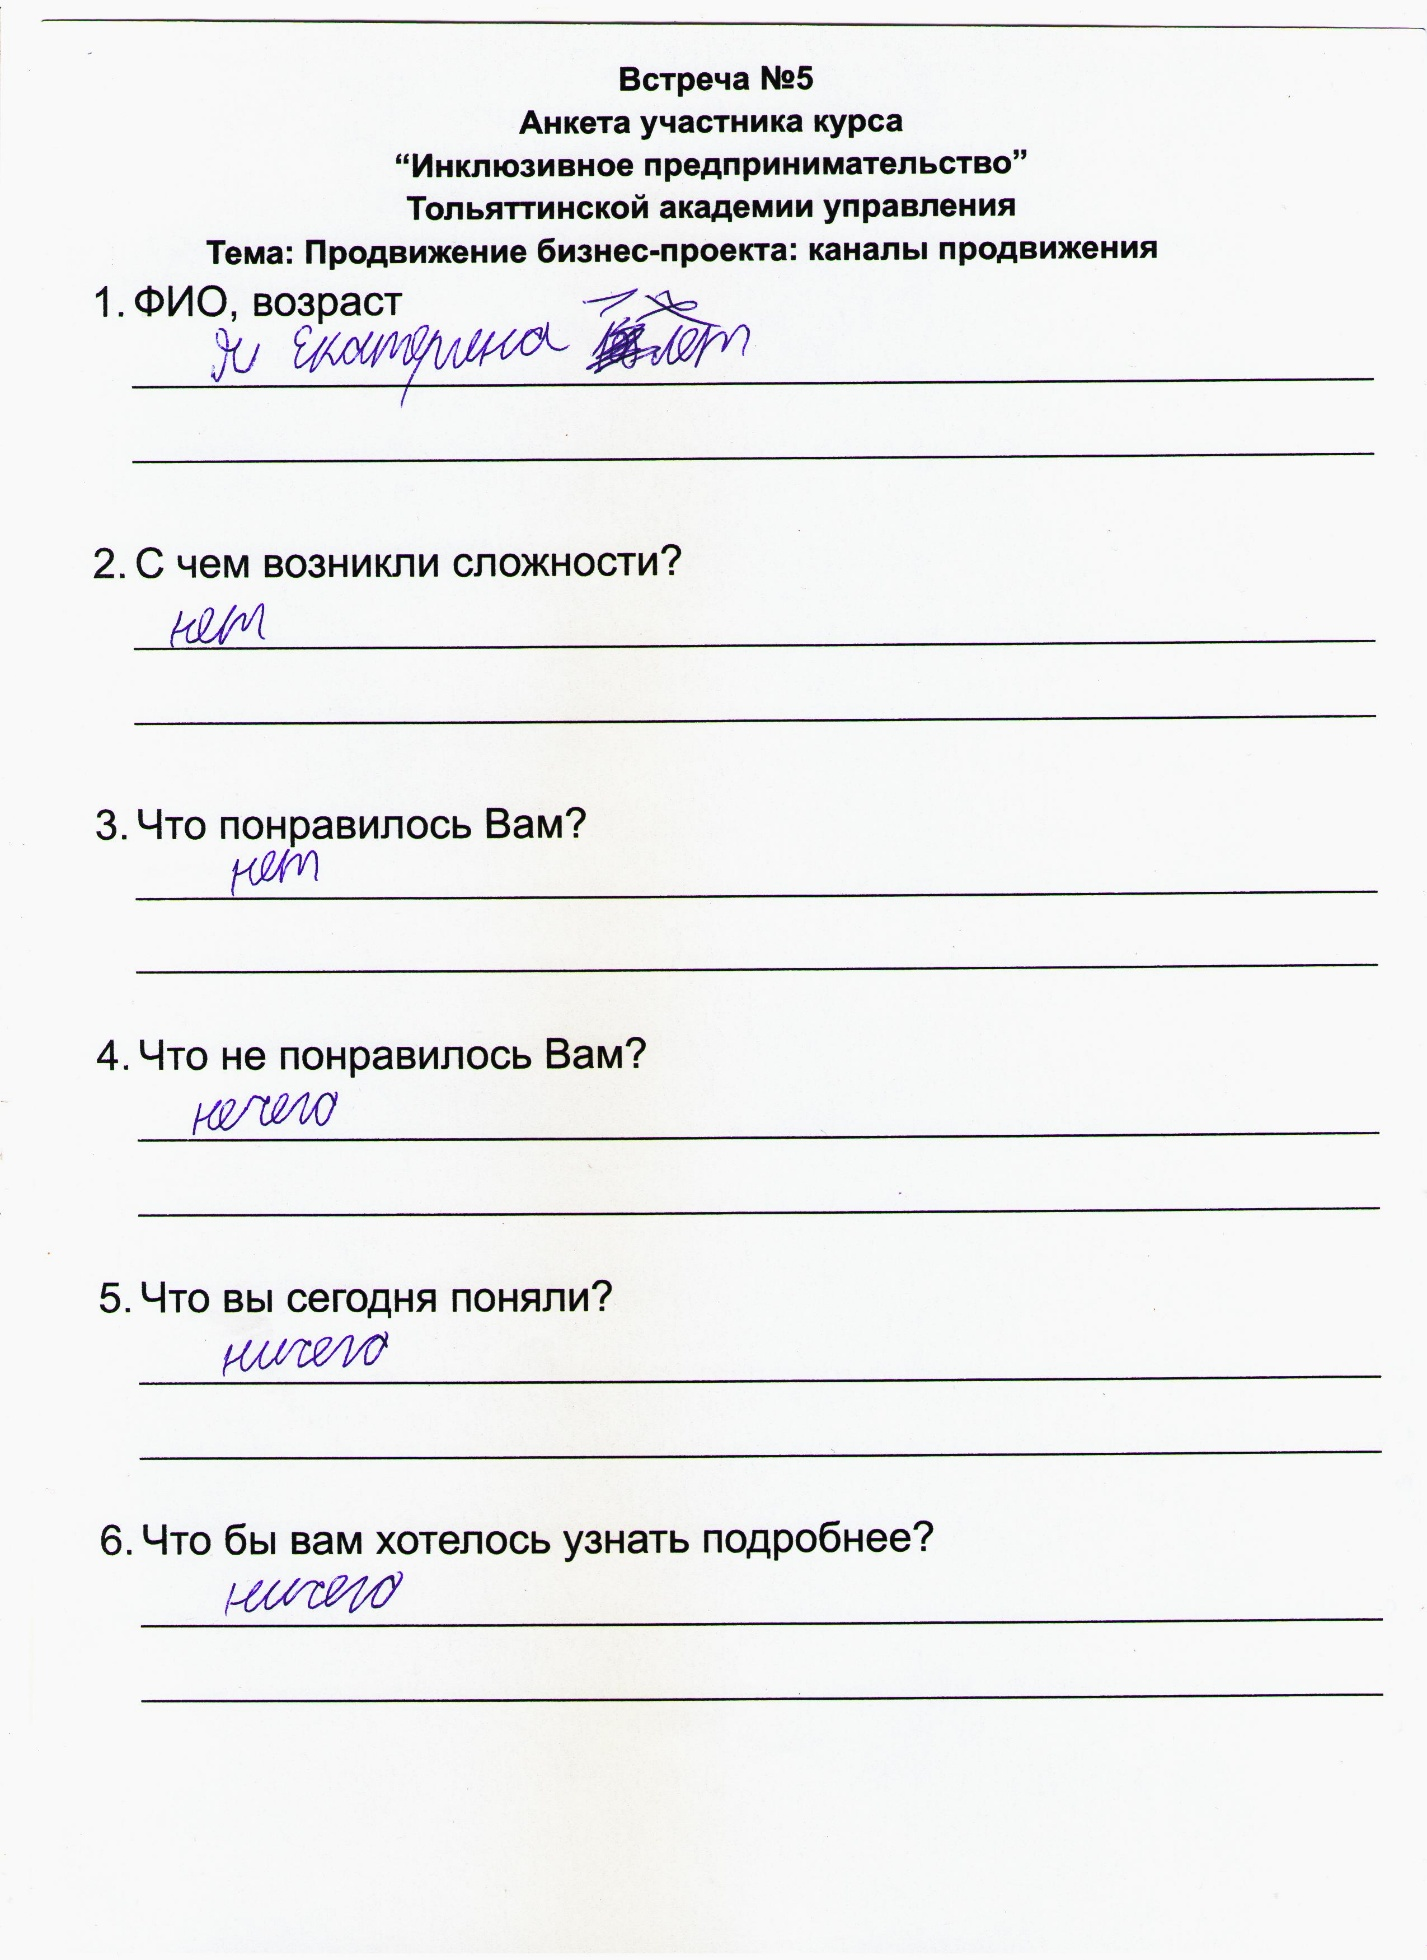 Встреча №5
Анкета участника курса
“Инклюзивное предпринимательство”
Тольяттинской академии управления
Тема: Продвижение бизнес-проекта: каналы продвижения
1. ФИО, возраст
Я Екатерина лет
2. С чем возникли сложности?
нет
3. Что понравилось Вам?
нет
4. Что не понравилось Вам?
нечего
5. Что вы сегодня поняли?
ничего
6. Что бы вам хотелось узнать подробнее?
ничего